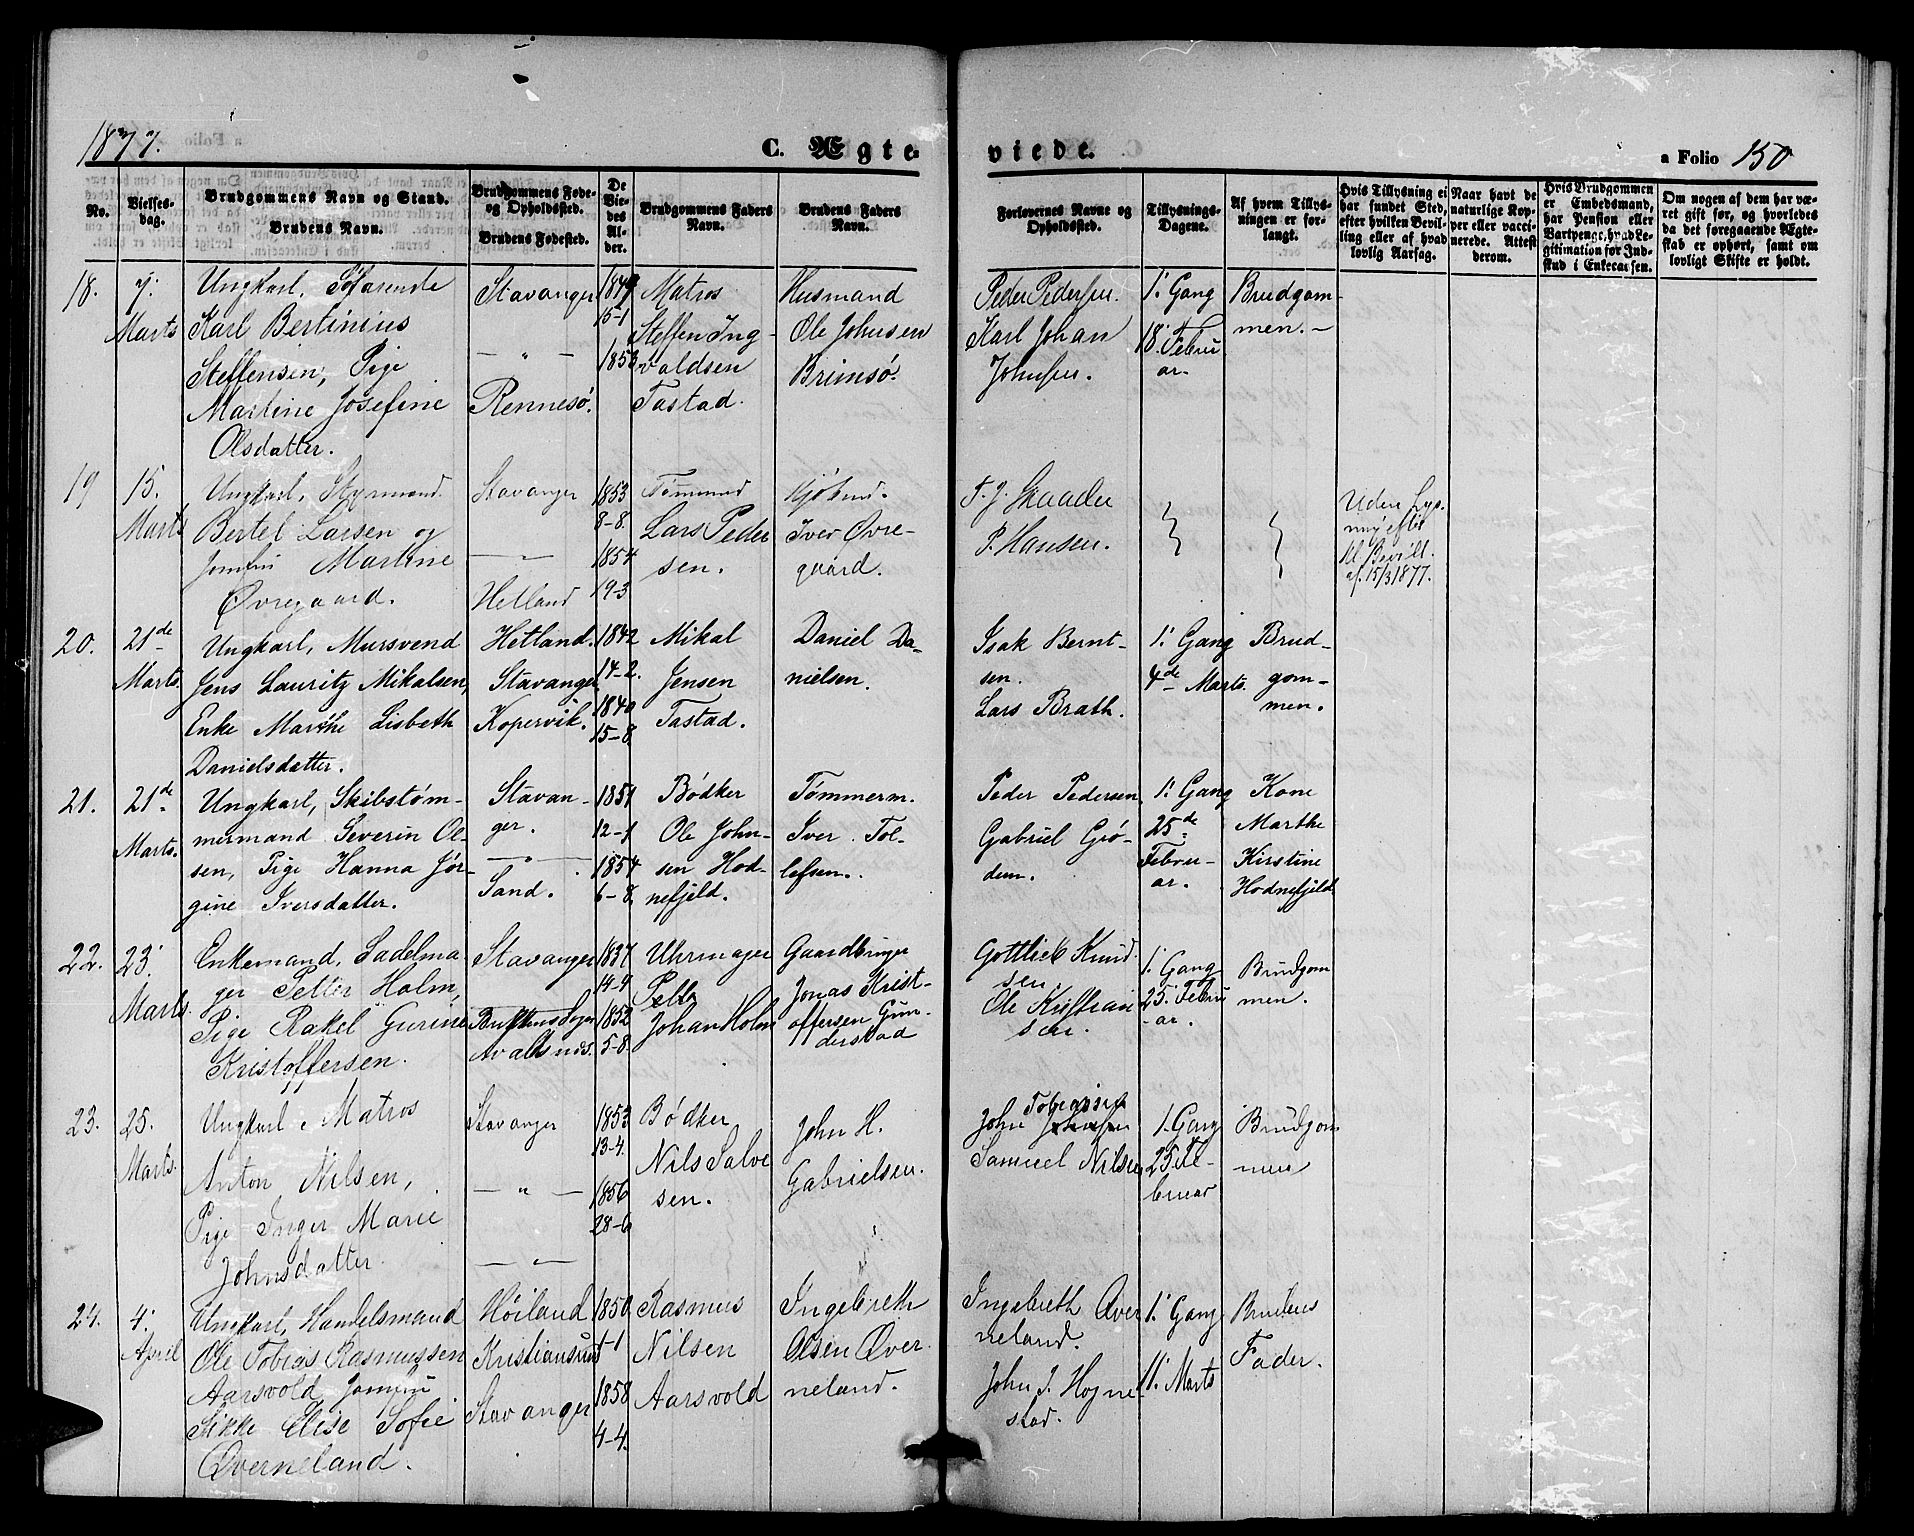 1877.
C. Ægte-
viede.
a Folio 150
No.
Vielses-
dag.
Brudgommens Navn og Stand.
Brudens Navn.
Brudgommens Føde-
og Opholdssted.
Brudens Fødested.
De
Vie-
des
Al-
der.
Brudgommens Faders
Navn.
Brudens Faders
Navn.
Forlovernes Navne og
Opholdssted.
Tillysnings-
Dagene.
Af hvem Tillys-
ningen er for-
langt.
Hvis Tillysning ei
har fundet Sted,
efter hvilken Bevil-
ling eller af hvad
lovlig Aarsag.
Naar havt de
naturlige Kop-
per eller vacci-
nerede. Attest
derom.
Hvis Brudgommen
er Embedsmand,
har Pension eller
Vartpenge, hvad Le-
gitimation for Ind-
stud i Enkecassen.
Om nogen af dem har væ-
ret gift før, og hvorledes
da det foregaaende Ægte-
skab er ophørt, samt om
lovligt Skifte er holdt.
18.
7.
Marts
Ungkarl, Søfarende
Karl Bertinius
Steffensen, Pige
Martine Josefine
Olsdatter.
Stavanger
— " —
Rennesø.
1849
15-1
1853
Matros
Steffen Ing-
valdsen
Tastad.
Husmand
Ole Johnsen
Brimsø.
Peder Pedersen.
Karl Johan
Johnsen.
1. Gang
18. Febru
ar.
Brudgom-
men.-
19
15.
Marts
Ungkarl, Styrmand
Bertel Larsen og
Jomfru Martine
Øvregaard.
Stavanger
— " —
Hetland
1853
8-8.
1854
19-3
Tømmmd
Lars Peder
sen.
Kjøbmd.
Iver Øvre-
gaard.
T. J. Skaadel
P. Hansen.
Uden Lys-
ning efter
kl. Bevill.
af 15/3 1877.
20.
21de
Marts
Ungkarl, Mursvend
Jens Lauritz Mikalsen,
Enke Marthe Lisbeth
Danielsdatter.
Hetland.
Stavanger
Kopervik.
1842
14-2.
1840
15-8
Mikal
Jensen
Tastad.
Daniel Da-
nielsen.
Isak Bernt-
sen.
Lars Brath.
1. Gang
4de Marts.
Brud-
gom-
men.
21.
21de
Marts.
Ungkarl, Skibstøm-
mermand Severin Ol-
sen, Pige Hanna Jør-
gine Iversdatter.
Stavan-
ger.
— " —
Sand.
1851
12-1
1854
6-8.
Bødker
Ole John-
sen Hod-
nefjeld.
Tømmerm.
Iver Tol-
lefsen.
Peder Pedersen,
Gabriel Grø-
dem.
1. Gang
25de
Febru-
ar.
Kone
Marthe
Kirstine
Hodnefjeld
22.
23.
Marts.
Enkemand, Sadelma-
ger Petter Holm,
Pige Rakel Gurine
Kristoffersen.
Stavanger
Avaldsnes.
1837
14-9
1852
5-8.
Uhrmager
Petter
Johan Holm
Gaardbruger
Jonas Krist-
offersen Gun-
derstad
Gottlieb Knud
sen.
Ole Kristian
sen.
1. Gang
25. Febru
-ar.
Brudgom
men.
23.
25.
Marts.
Ungkarl, Matros
Anton Nilsen,
Pige Inger Marie
Johnsdatter
Stavanger
— " —
— " —
1853
13-4.
1856
28-6
Bødker
Nils Salve
sen.
John H.
Gabrielsen.
Tobiassen
John Johnsen
Samuel Nilsen
1. Gang
25 Fe-
bruar
Brudgom
men
24.
4.
April
Ungkarl, Handelsmand
Ole Tobias Rasmussen
Aarsvold, Jomfru
Sikke Elise Sofie
Øverneland.
Høiland
Kristiansund
Stavanger
1850
1-1
1858
4-4.
Rasmus
Nilsen
Aarsvold
Ingebreth
Olsen Øver
neland.
Ingebreth Øver
neland.
John J. Hogne-
stad.
1. Gang
11. Marts
Brudens
Fader.